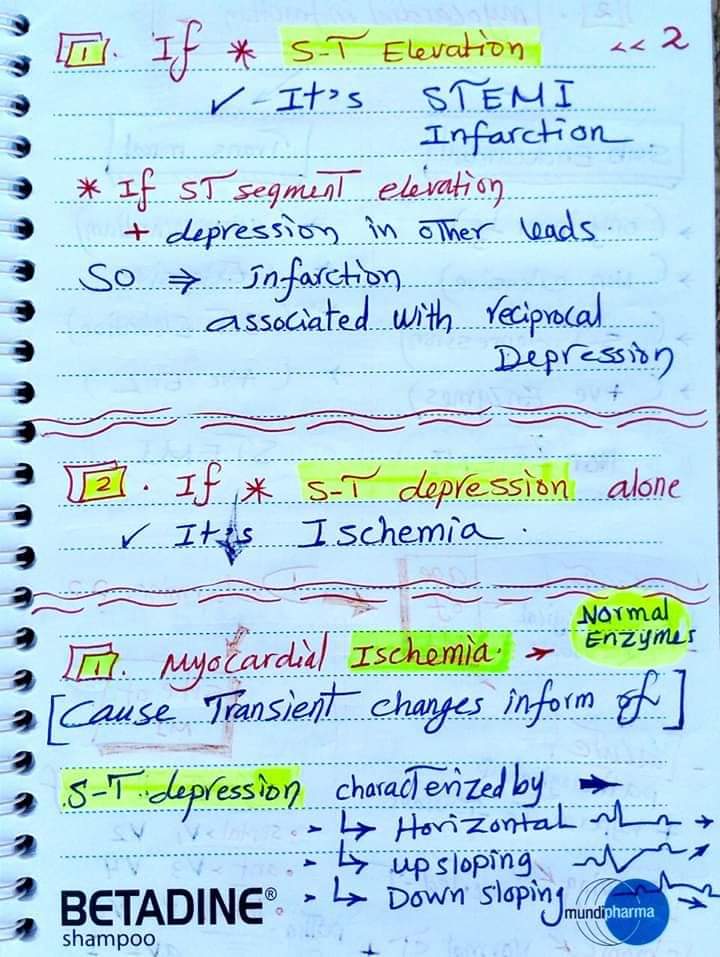 1. If * S-T Elevation << 2
✓ - It's STEMI
Infarction
* If ST segment elevation
+ depression in other leads
So ⇒ infarction
associated with reciprocal
Depression
2. If * S-T depression alone
✓ It's Ischemia.
Normal
Enzymes
1. Myocardial Ischemia. →
[Cause Transient changes inform of]
S-T depression characterized by →
• ↳ Horizontal
• ↳ up sloping
• ↳ Down sloping
BETADINE®
shampoo
mundipharma